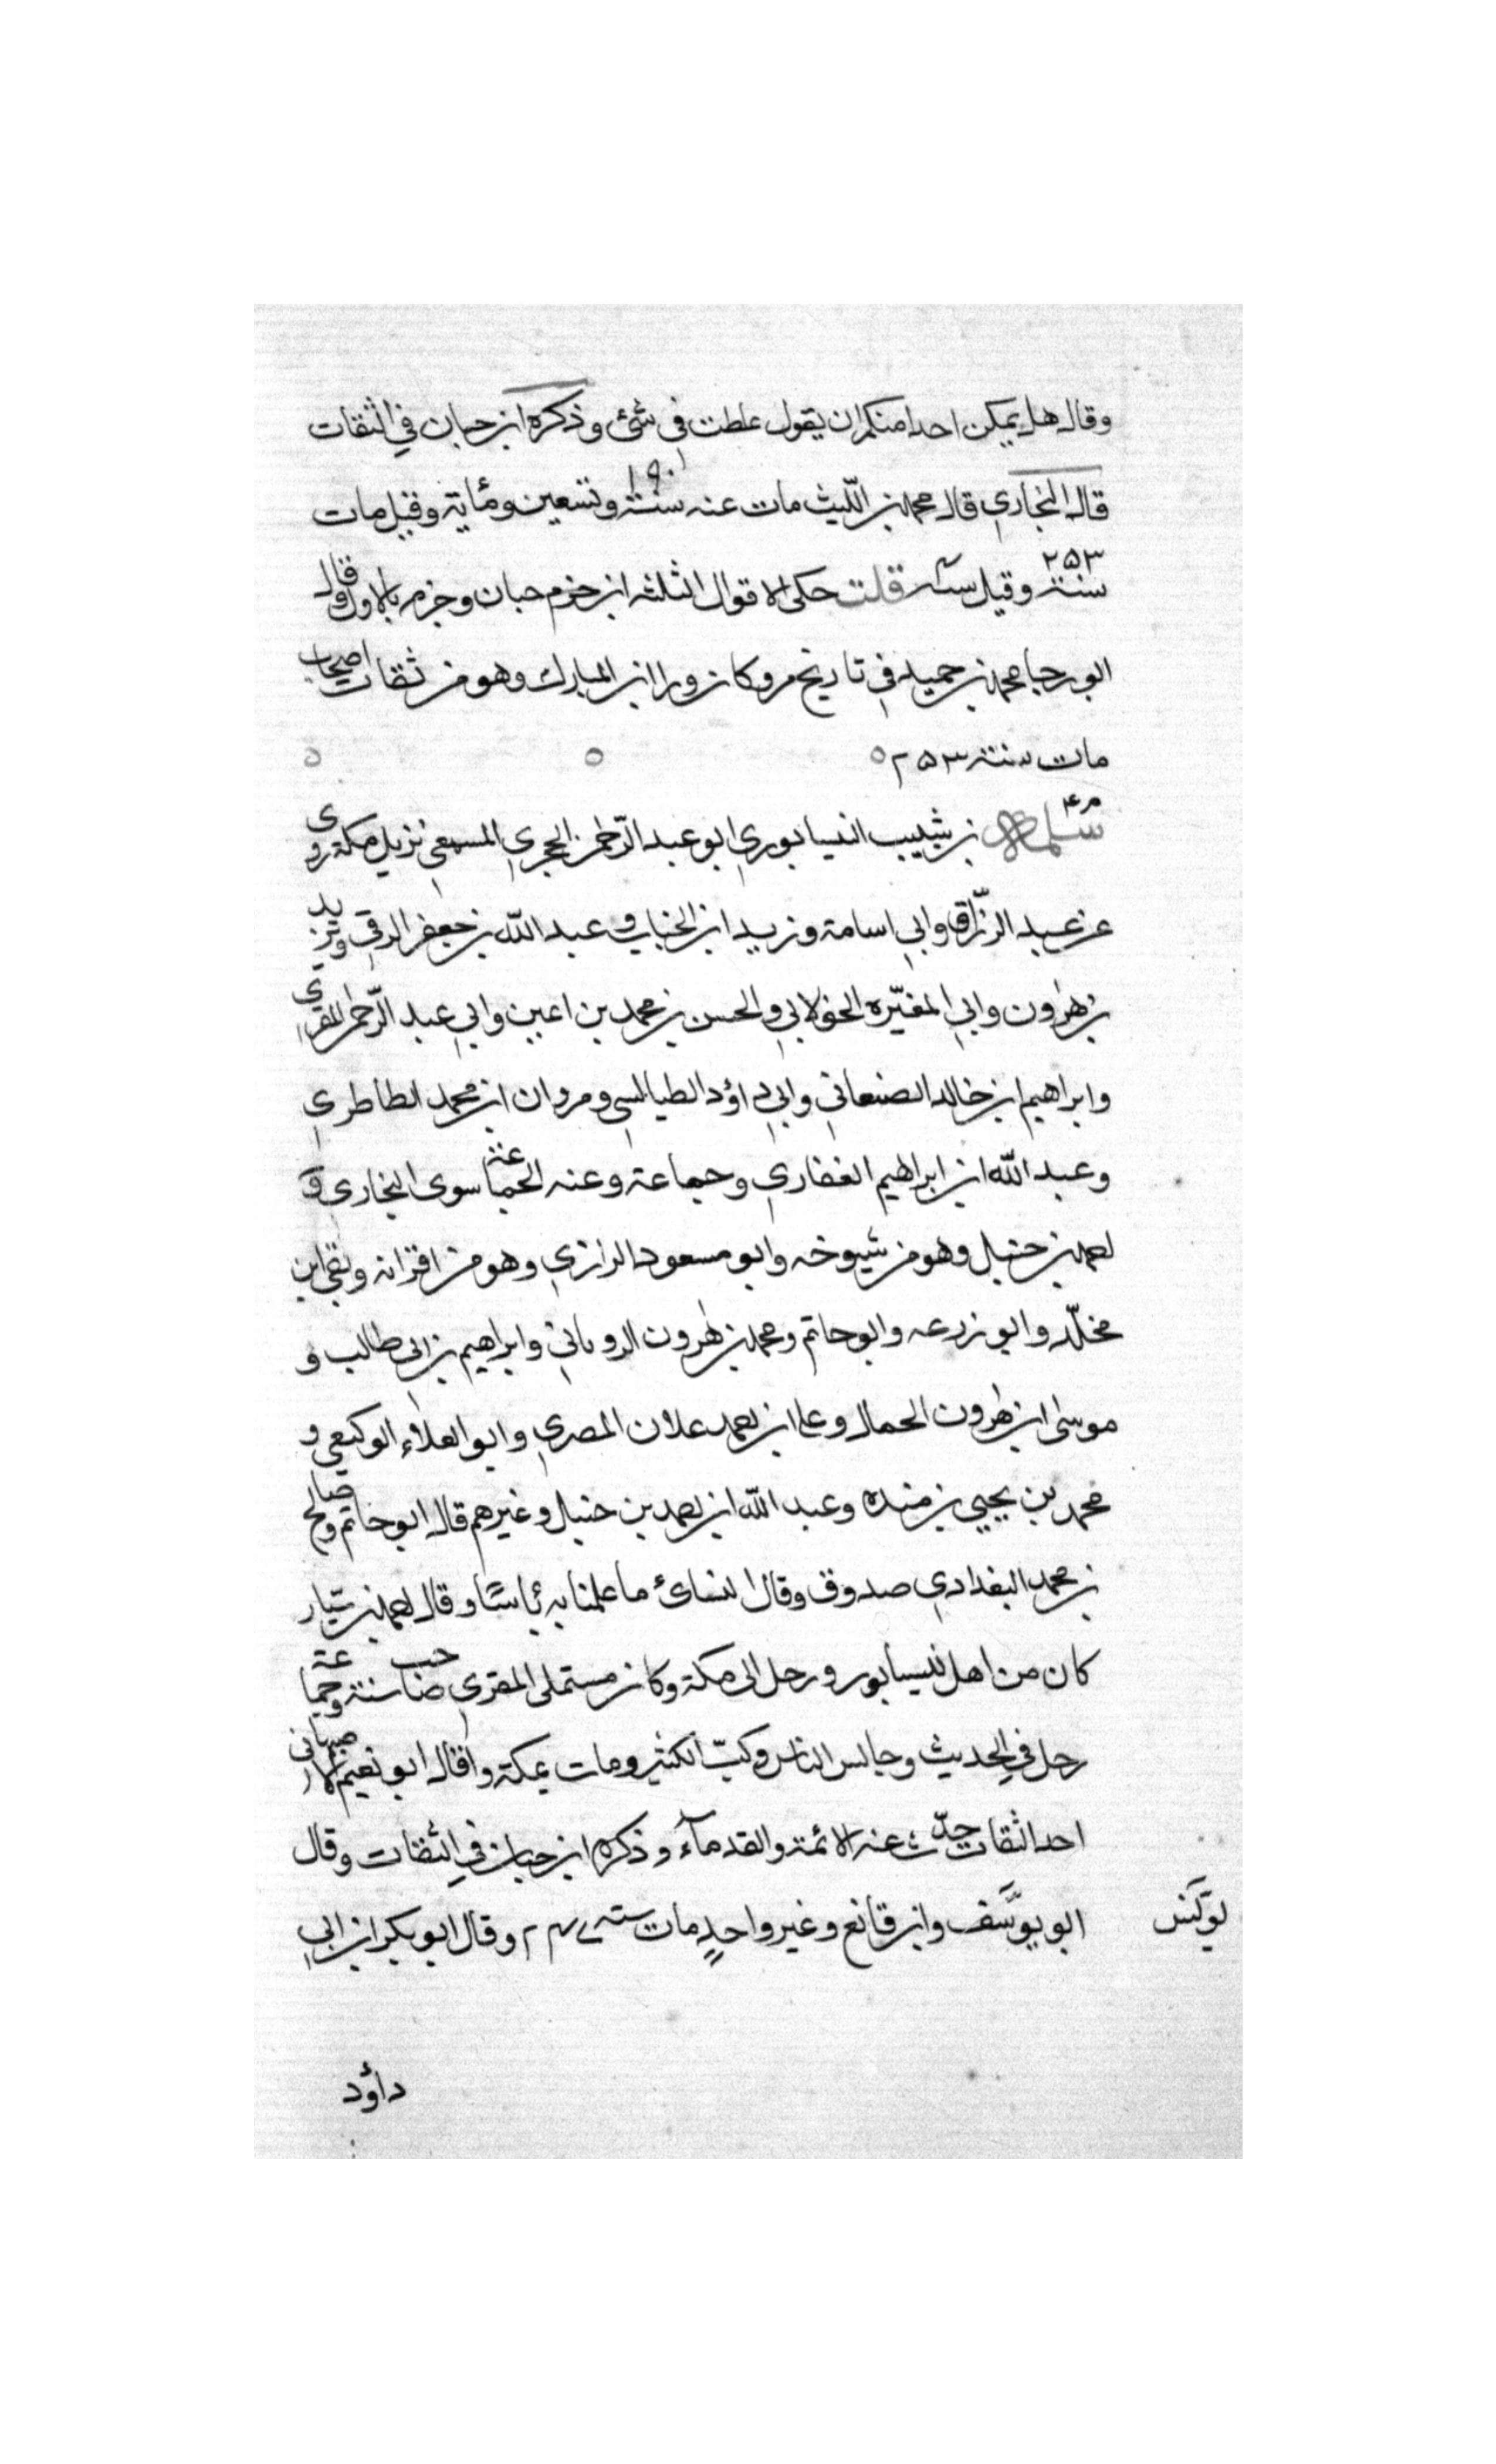 وقال هل يمكن احدا منكم ان يقول غلطت في شئ وذكره ابن حبان في الثقات
قال البخاري قال محمد بن الليث مات عنه سنة ١٩٠ وتسعين ومأية وقيل مات
سنة ٢٥٣ وقيل سنة قلت حكى الاقوال الثلثه ابن حزم حبان وجزم بالاول وقال
ابو رجا محمد بن حميله في تاريخ مرو كان ورا ابن المبارك وهو من ثقات اصحاب
مات سنة ٢٥٣
سلمة بن شبيب النيسابوري ابو عبد الرّحمٰن الحجري المسمعي نزيل مكة روى
عن عبد الرزّاق وابي اسامة وزيد ابن الحباب و عبد اللّه بن جعفر الرقي ويزيد
بن هٰرون وابي المغيّره الخولاني والحسن بن محمد بن اعين وابي عبد الرّحمٰن المقري
وابراهيم ابن خالد الصنعاني وابي داؤد الطيالسي ومروان ابن محمد الطاطري
وعبد اللّه ابن ابراهيم الغفاري وجماعة وعنه الجماعة سوى البخاري و
احمد بن حنبل وهو من شيوخه وابو مسعود الرازي وهو من اقرانه وبقي ابن
مخلّد وابو زرعه وابو حاتم ومحمد بن هٰرون الروياني وابراهيم بن ابي طالب و
موسٰى ابن هٰرون الحمال وعلي ابن احمد علان المصري وابو العلاء الوكيعي و
محمد بن يحيي بن منده وعبد اللّه ابن احمد بن حنبل وغيرهم قال ابو حاتم وصالح
بن محمد البغدادي صدوق وقال النسائ ما علمنا به بأسًا وقال احمد بن سيّار
كان من اهل نيسابور ورحل الى مكة وكان مستملى المقري صاحب سنة وجماعة
رحل في الحديث وجالس الناس وكتب الكثير ومات بمكة وقال ابو نعيم الاصبهاني
احد الثقات حدّث عنه الائمة والقدمآء وذكره ابن حبان في الثقات وقال
ابو يوسف وابن قانع وغير واحدٍ مات سنة وقال ابو بكر ابن ابي
يونس
داؤد